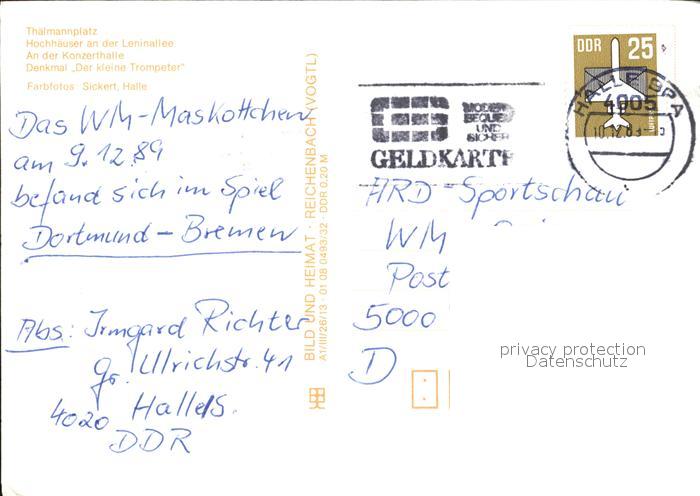 Thälmannplatz
Hochhäuser an der Leninallee
An der Konzerthalle
Denkmal „Der kleine Trompeter"
Farbfotos Sickert, Halle
Das WM-Maskottchen
am 9.12.89
befand sich im Spiel
Dortmund – Bremen
Abs: Irmgard Richter
gr. Ulrichstr. 41
4020 Halle/S.
DDR
BILD UND HEIMAT · REICHENBACH (VOGTL)
A1/III/26/13 · 01 08 0493/32 · DDR 0,20 M
DDR 25
HALLE BPA
4005
UND
GELDKARTE
ARD-Sportschau
WM
Post
5000
D
privacy protection
Datenschutz